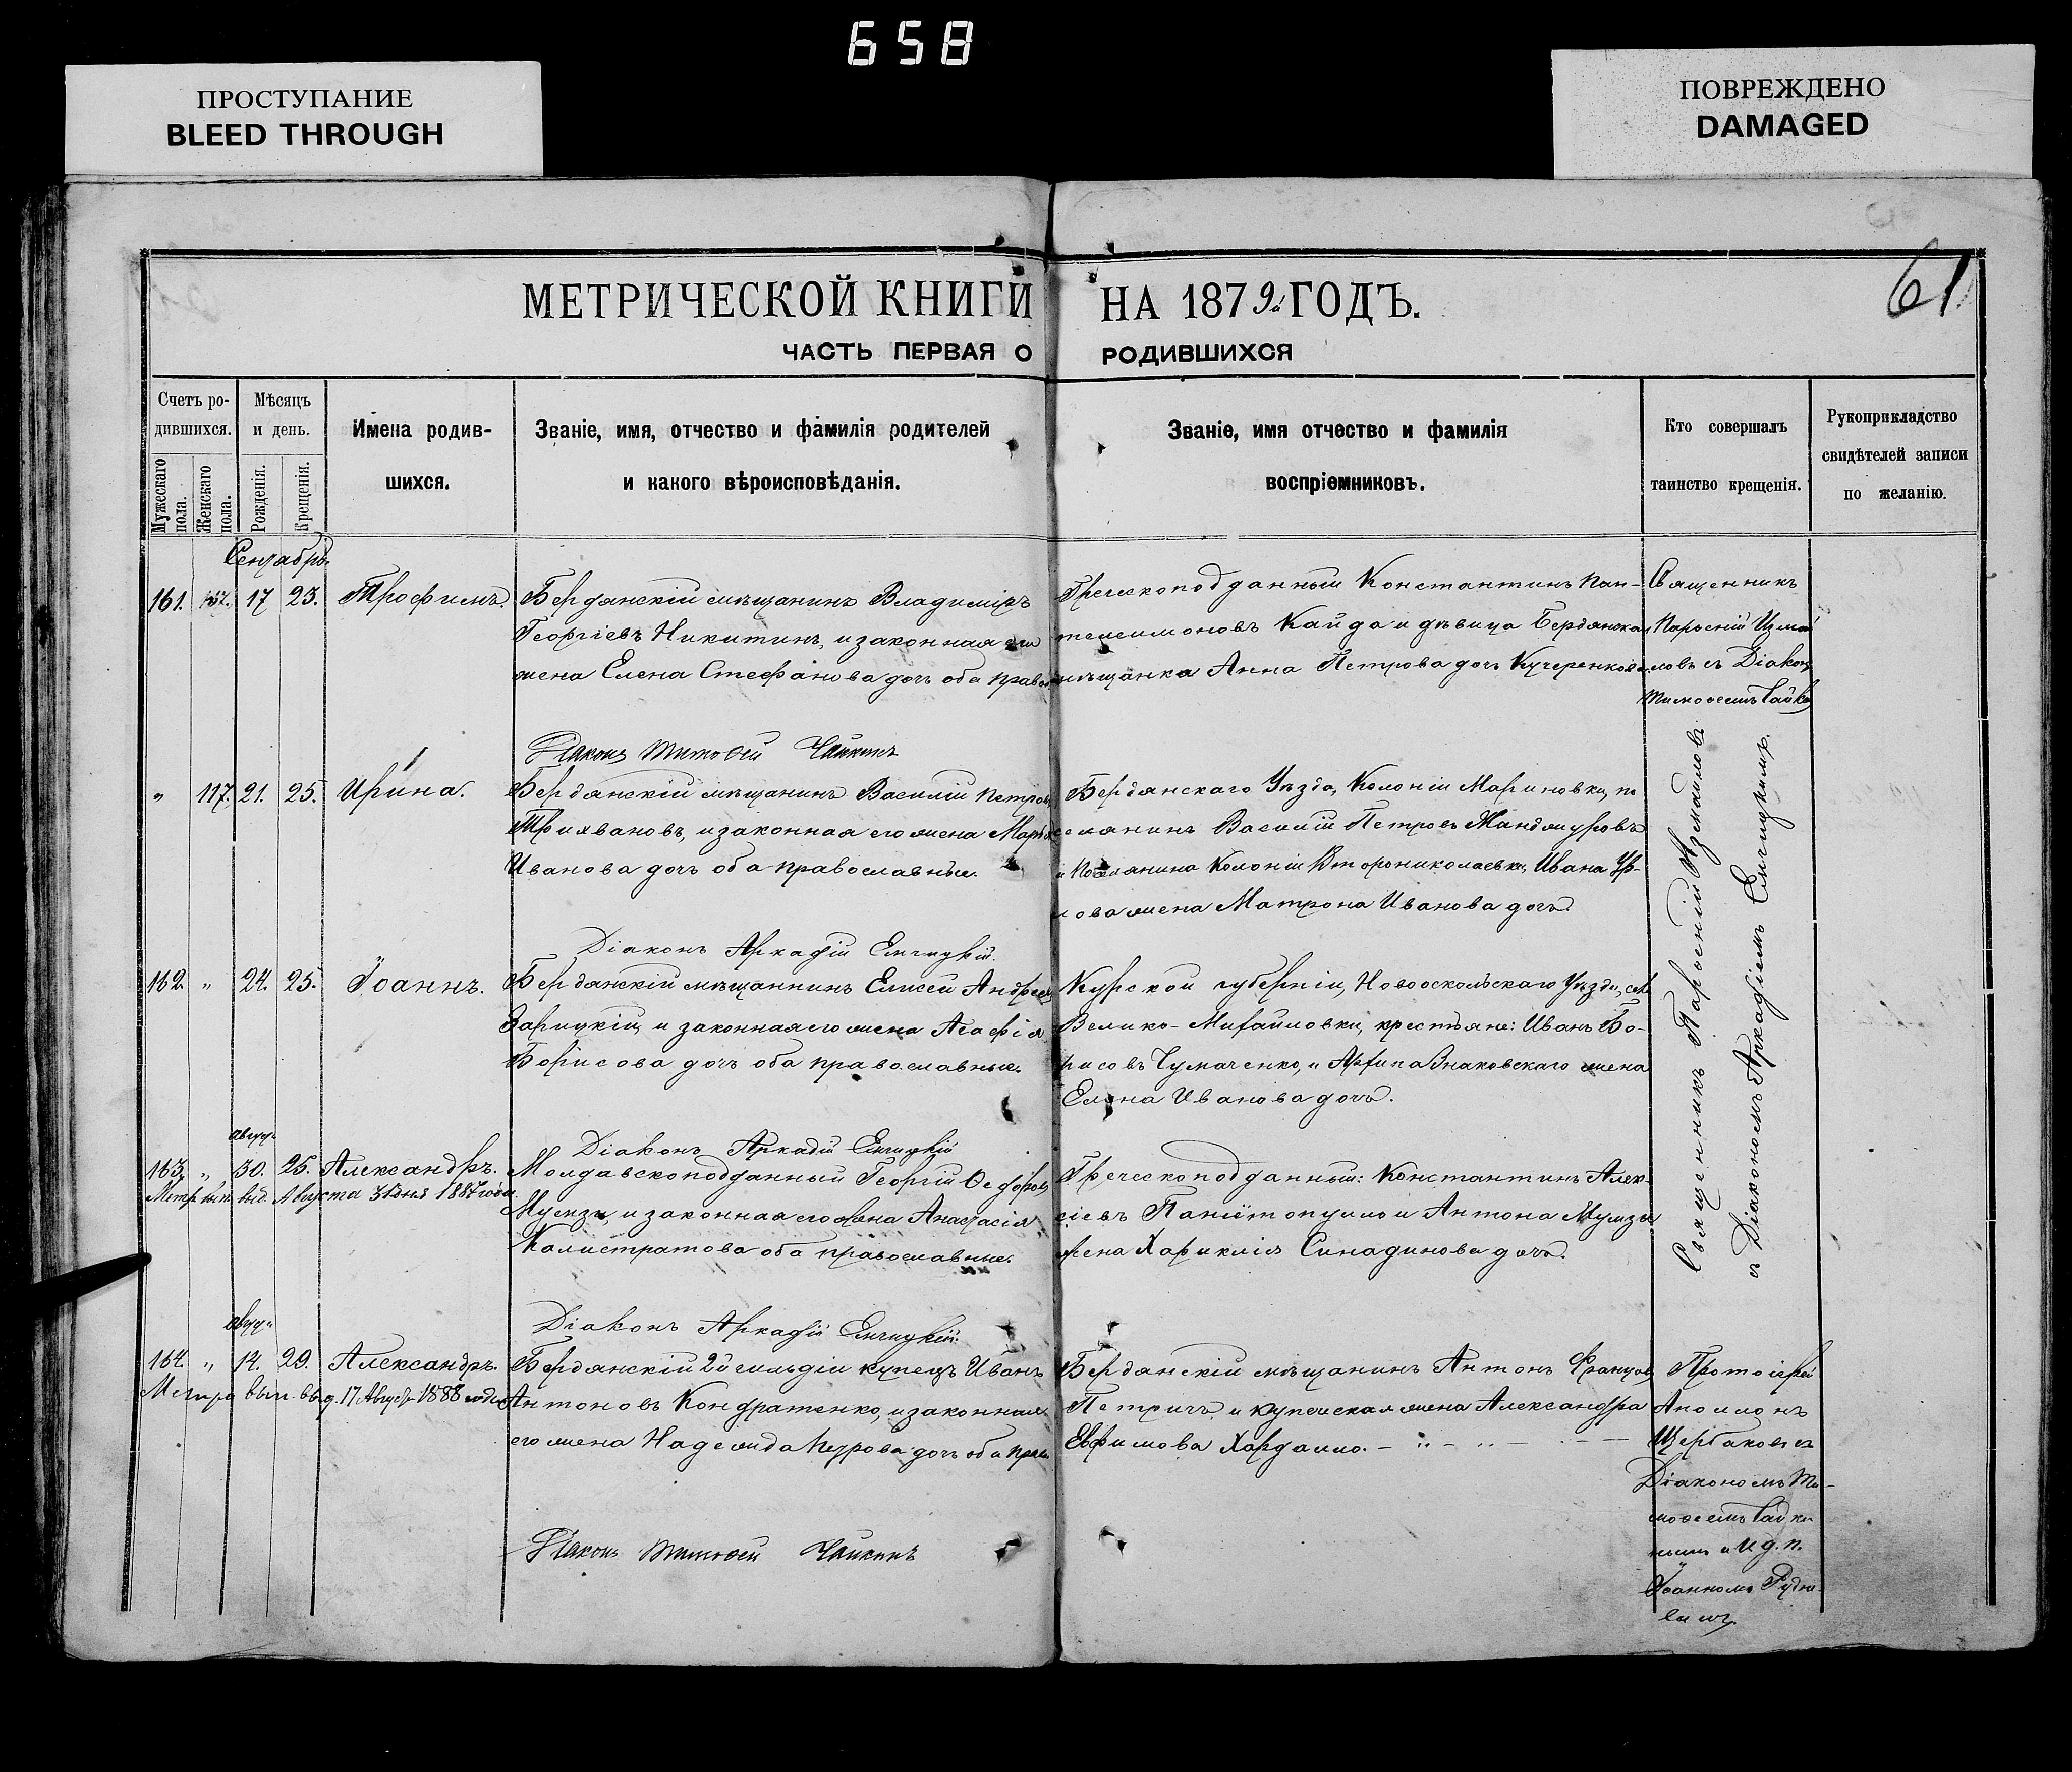 658
ПРОСТУПАНИЕ
BLEED THROUGH
ПОВРЕЖДЕНО
DAMAGED
61
МЕТРИЧЕСКОЙ КНИГИ НА 1879 ГОДЪ.
ЧАСТЬ ПЕРВАЯ О РОДИВШИХСЯ
Счетъ ро-
дившихся.
Мужескаго пола.
Женскаго пола.
Мѣсяцъ
и день.
Рожденія.
Крещенія.
Имена родив-
шихся.
Званіе, имя, отчество и фамилія родителей
и какого вѣроисповѣданія.
Званіе, имя отчество и фамилія
воспріемниковъ.
Кто совершалъ
таинство крещенія.
Рукоприкладство
свидѣтелей записи
по желанію.
Сентябрь
161. 17 23. Трофимъ.
Бердянскій мѣщанинъ Владиміръ
Георгіевъ Никитинъ, и законная его
жена Елена Стефанова дочь оба право
Греческоподданный Константинъ Пан-
телеимоновъ Кайда и дѣвица Бердянская
мѣщанка Анна Петрова дочь Кучеренкова
Священникъ
Парѳеній Измай
ловъ съ Діакон
Тимоѳеемъ
Діаконъ Тимоѳей Чайкинъ
" 117. 21. 25. Ирина.
Бердянскій мѣщанинъ Василій Петровъ
и законная его жена Марѳа
Иванова дочь оба православные.
Бердянскаго Уѣзда, Колоніи Мариновки, по
селянинъ Василій Петровъ Манджуровъ
и Поселянина Колоніи Второниколаевки, Ивана
жена Матрона Иванова дочь.
Діаконъ Аркадій Емчицкій.
162. " 24. 25. Іоаннъ.
Бердянскій мѣщаннинъ Елисей Андреевъ
Зарицкій, и законная его жена Агафія
Борисова дочь оба православные.
Курской губерніи, Новооскольскаго Уѣзда, села
Велико-Михайловки, крестьяне: Иванъ Бо-
рисовъ Чумаченко, и Архипа Знаковскаго жена
Елена Иванова дочь.
Діаконъ Аркадій Емчицкій
Авгус
163. " 30. 25. Александръ.
Августа 31 дня 1887 года
Молдавскоподданный Георгій Ѳедоровъ
и законная его жена Анастасія
Калистратова оба православные.
Греческоподданный: Константинъ Алек-
сіевъ и Антона
жена Хариклія Синадинова дочь.
Священникъ Парѳеній Измаиловъ
съ Діакономъ Аркадіемъ Емчицкимъ.
Діаконъ Аркадій Емчицкій.
Авгус
164. " 14. 29. Александръ.
Метр. вып. выд. 17 Августа 1888 года
Бердянскій 2й гильдіи купецъ Иванъ
Антоновъ Кондратенко, и законная
его жена Надежда Петрова дочь оба прав.
Бердянскій мѣщанинъ Антонъ Францовъ
Петричъ и купеческая жена Александра
Евфимова
Протоіерей
Аполлонъ
Щербаковъ съ
Діакономъ Ти-
моѳеемъ Чайки
нымъ и И. д. п.
Іоанномъ
Діаконъ Тимоѳей Чайкинъ